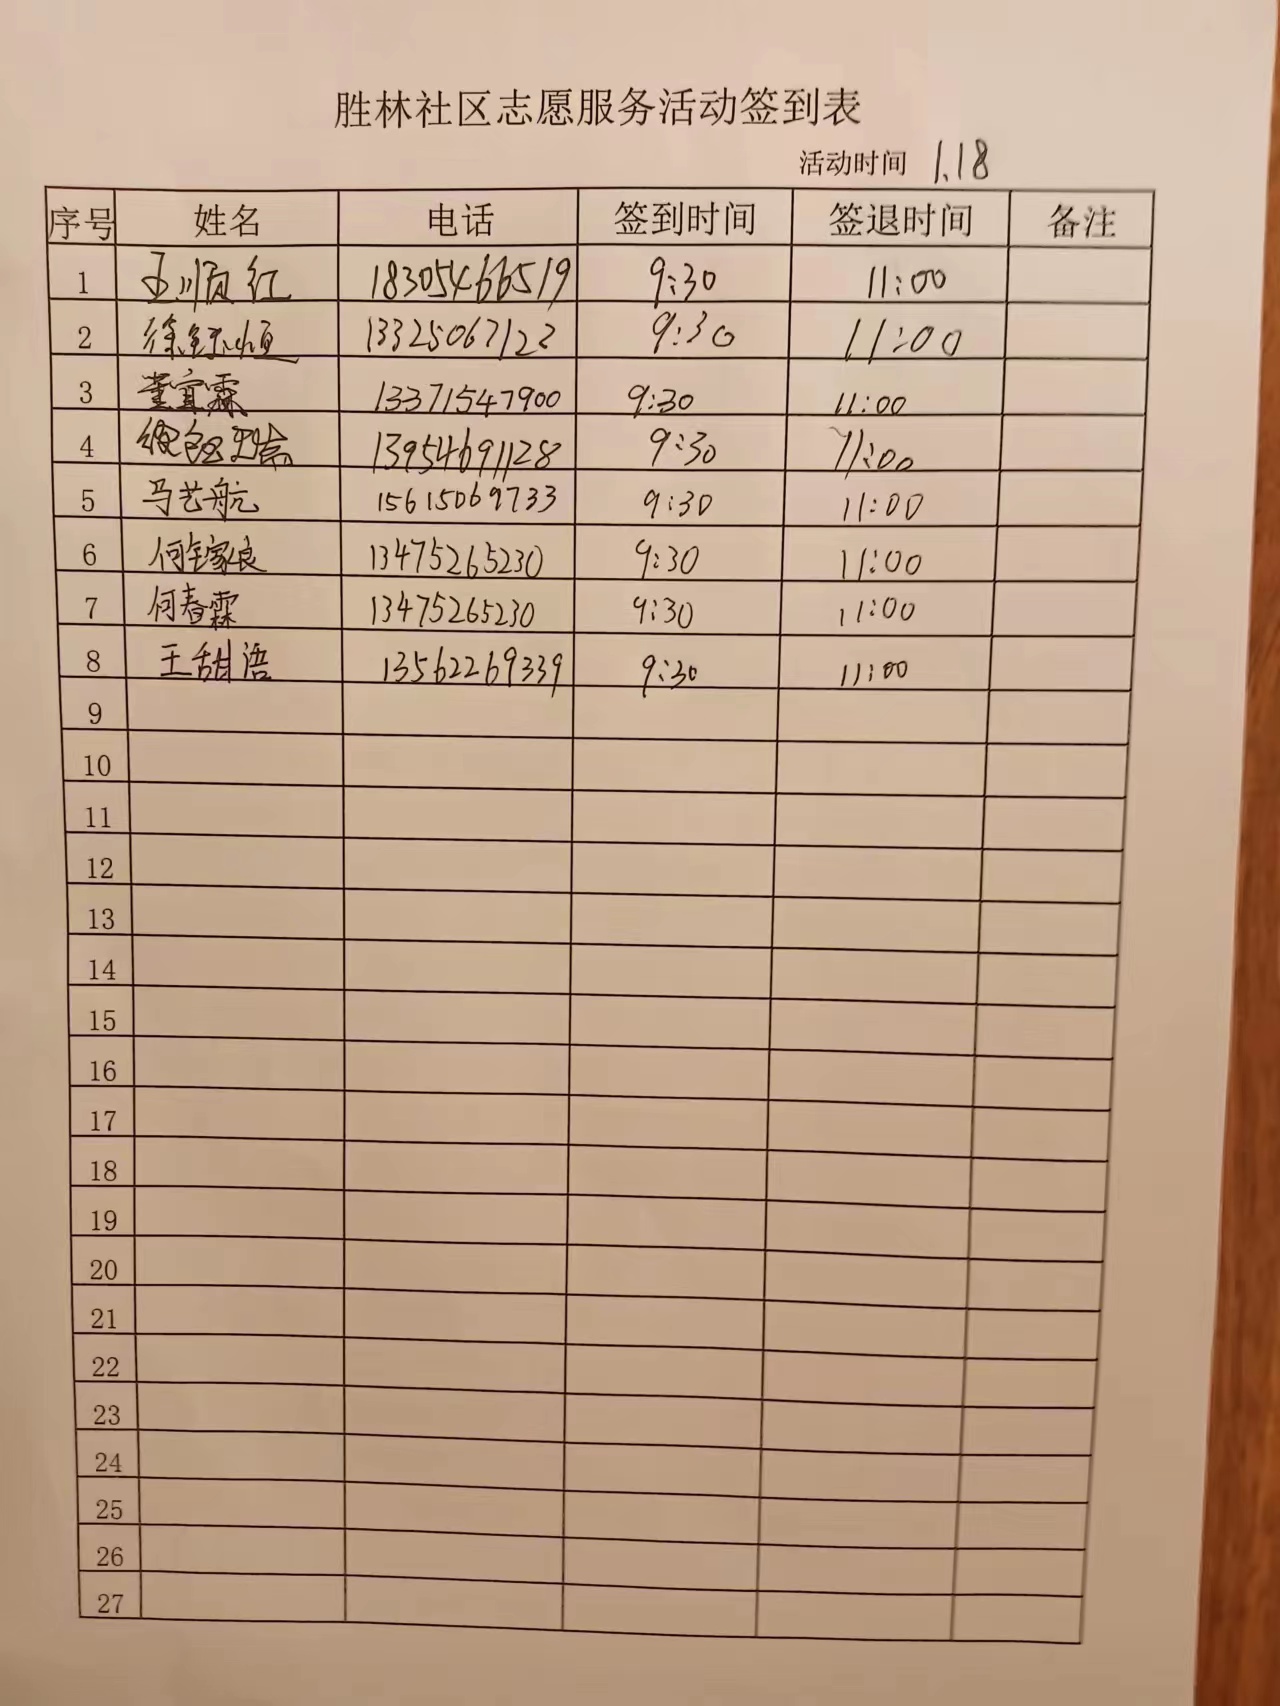 胜林社区志愿服务活动签到表
活动时间 1.18
序号 姓名 电话 签到时间 签退时间 备注
1 王顺红 18305466519 9:30 11:00
2 徐钰恒 13325067122 9:30 11:00
3 董宜霖 13371547900 9:30 11:00
4 13954691128 9:30 11:00
5 马艺航 15615069733 9:30 11:00
6 何家良 13475265230 9:30 11:00
7 何春霖 13475265230 9:30 11:00
8 王甜语 13562269339 9:30 11:00
9
10
11
12
13
14
15
16
17
18
19
20
21
22
23
24
25
26
27